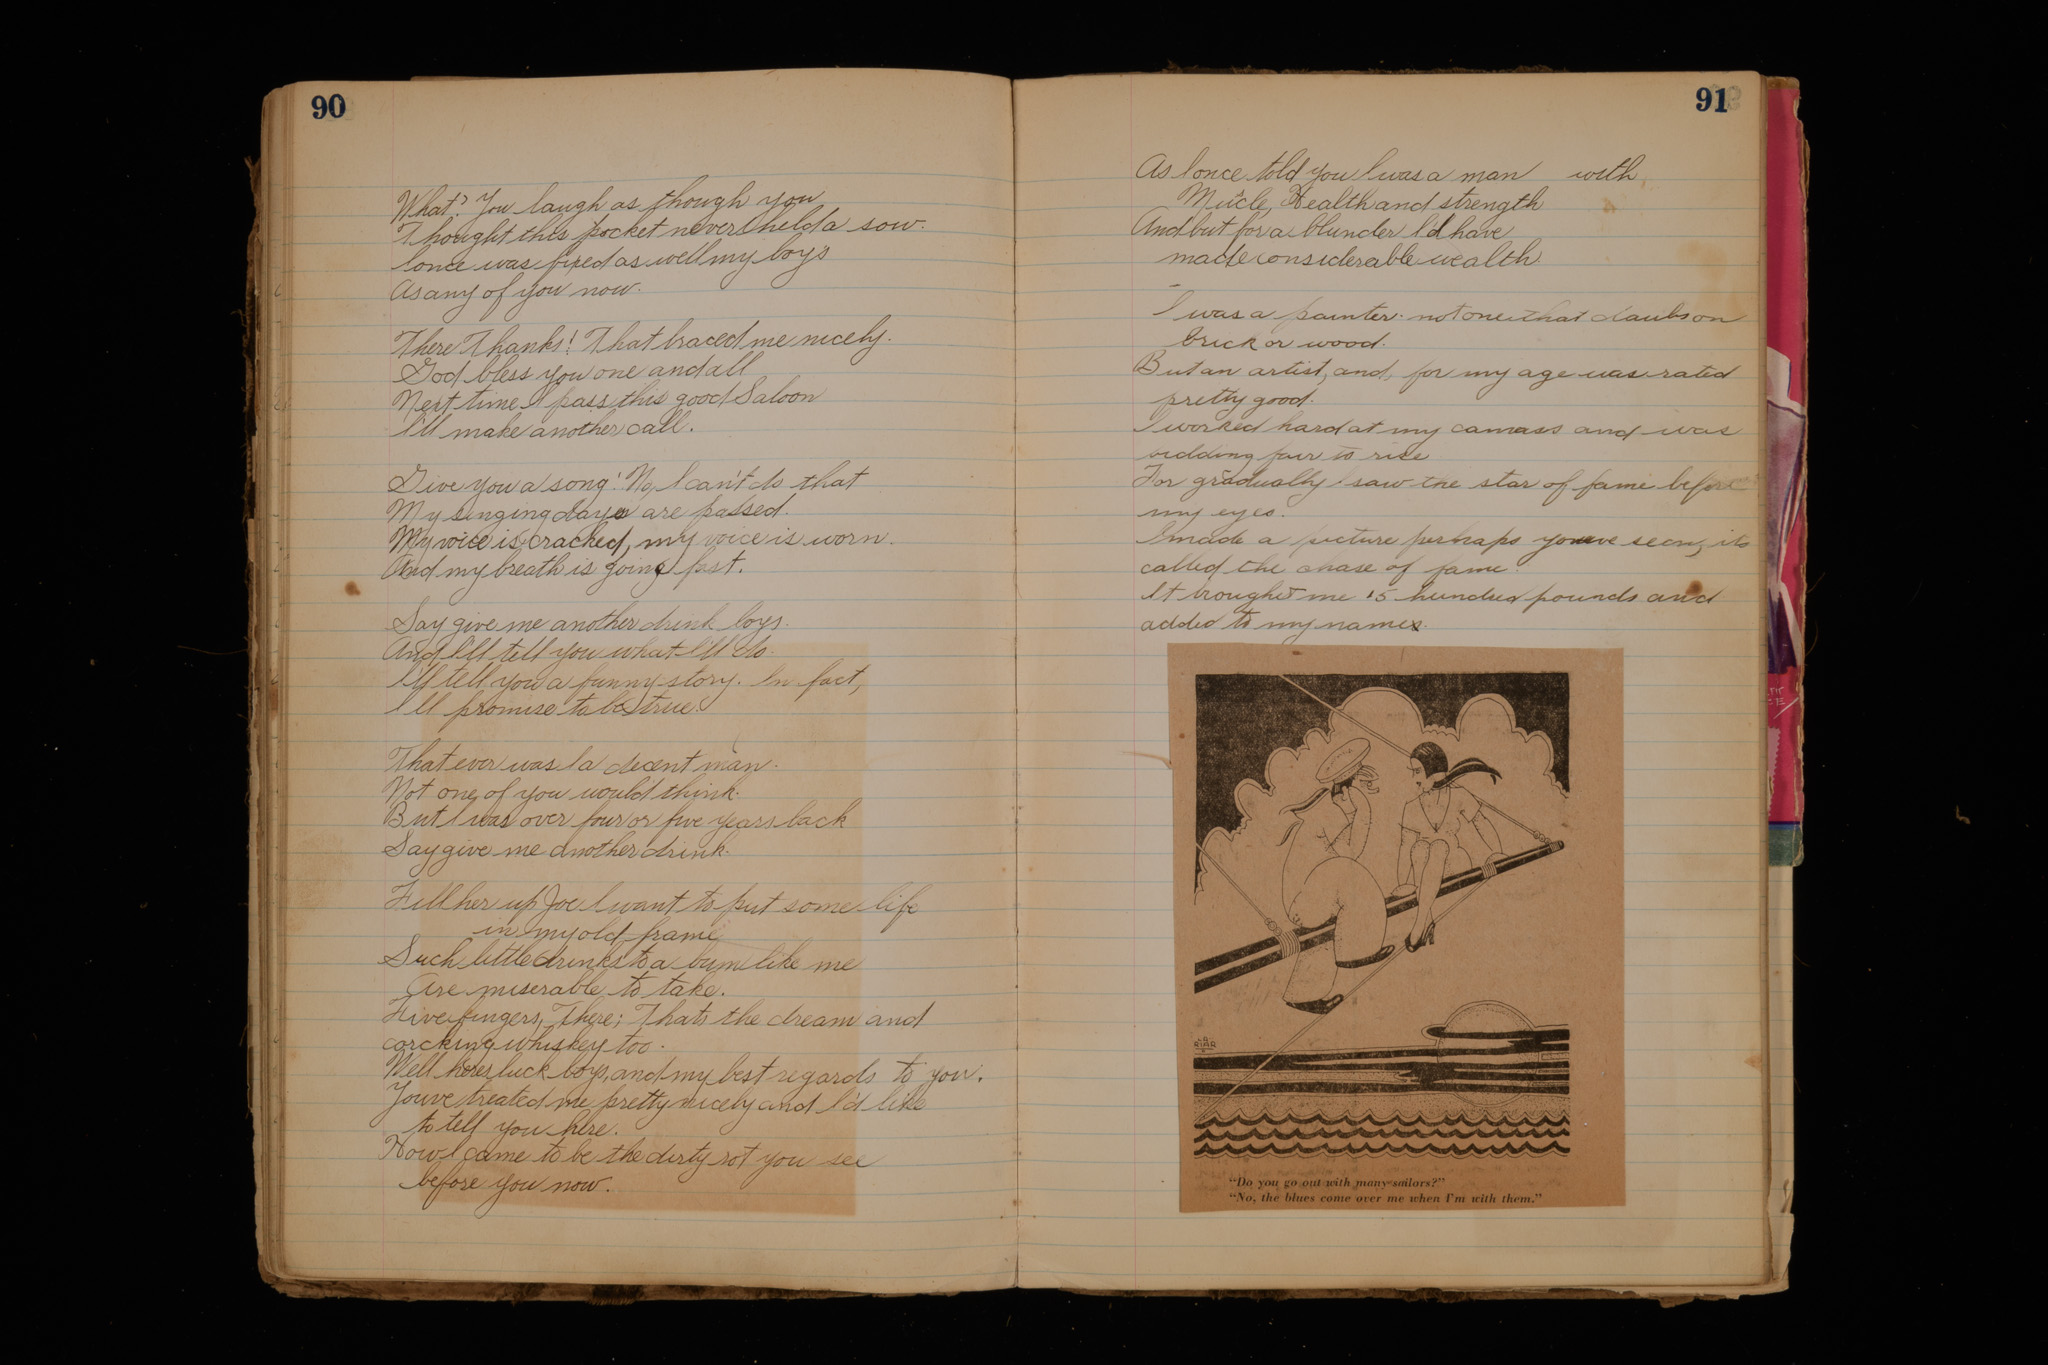 90
What? You laugh as though you
Thought this pocket never held a sow.
I once was fixed as well my boy's
As any of you now.
There Thanks! That braced me nicely.
God bless you one and all
Next time I pass this good Saloon
I'll make another call.
Give you a song! No, I can't do that
My singing days are passed.
My voice is cracked, my voice is worn.
And my breath is going fast.
Say give me another drink boys.
And I'll tell you what I'll do.
I'll tell you a funny story. In fact,
I'll promise to be true.
That ever was I a decent man.
Not one of you would think.
But I was over four or five years back
Say give me another drink.
Fill her up Joe I want to put some life
in my old frame
Such little drinks to a bum like me
Are miserable to take.
Five fingers, There; That's the dream and
corcking whiskey too.
Well heres luck boys, and my best regards to you.
Youve treated me pretty nicely and I'd like
to tell you here.
How I came to be the dirty sot you see
before you now.
91
As I once told you I was a man with
Muscle, Health and strength
And but for a blunder I'd have
made considerable wealth.
I was a painter. not one that daubs on
brick or wood.
But an artist, and, for my age was rated
pretty good.
I worked hard at my canvass and was
bidding fair to rise
For gradually I saw the star of fame before
my eyes.
I made a picture perhaps youve seen, its
called the chase of fame.
It brought me 15 hundred pounds and
added to my name.
"Do you go out with many sailors?"
"No, the blues come over me when I'm with them."